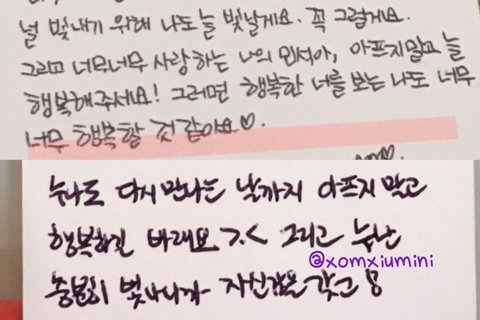 널 빛내기 위해 나도 늘 빛날게요. 꼭 그럴게요.
그리고 너무너무 사랑하는 나의 민석아, 아프지말고 늘
행복해주세요! 그러면 행복한 너를 보는 나도 너무
너무 행복할 것 같아요♡.
누나도 다시 만나는 날까지 아프지 말고
행복하길 바래요 >.< 그리고 누난
@xomxiumini
충분히 빛나니까 자신감을 갖고!